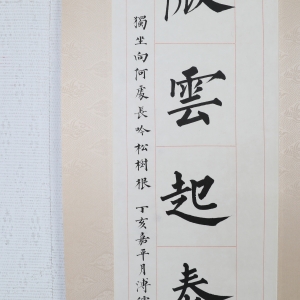 雲起泰
獨坐向何處長吟松樹根 丁亥嘉平月溥